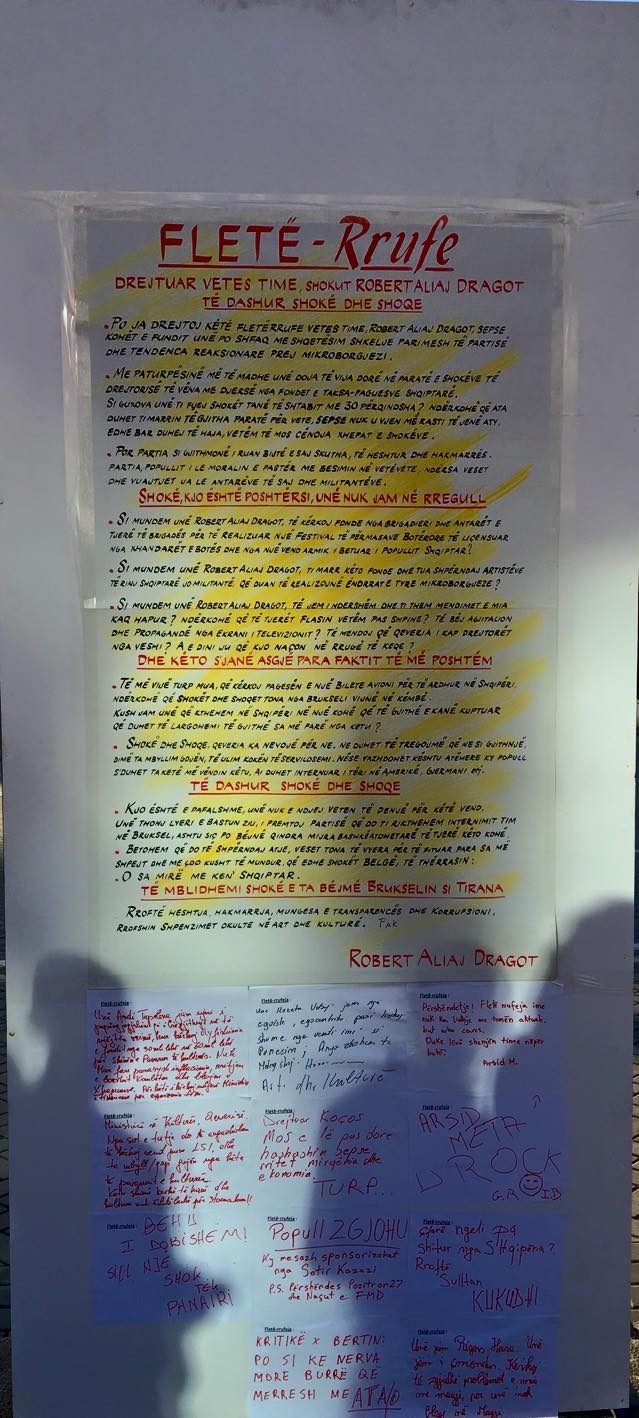 FLETË - Rrufe
DREJTUAR VETES TIME, SHOKUT ROBERT ALIAJ DRAGOT
TË DASHUR SHOKË DHE SHOQE
• PO JA DREJTOJ KËTË FLETËRRUFE VETES TIME, ROBERT ALIAJ DRAGOT, SEPSE
KOHËT E FUNDIT UNË PO SHFAQ ME SHQETËSIM SHKELJE PARIMESH TË PARTISË
DHE TENDENCA REAKSIONARE PREJ MIKROBORGJEZI.
• ME PATURPËSINË MË TË MADHE UNË DOJA TË VIJA DORË NË PARATË E SHOKËVE TË
DREJTORISË TË VËNA ME DJERSË NGA FONDET E TAKSA-PAGUESVE SHQIPTARË.
SI GUXOVA UNË TI FYEJ SHOKËT TANË TË SHTABIT ME 30 PËRQINDSHA? NDËRKOHË QË ATA
DUHET TI MARRIN TËGJITHA PARATË PËR VETE, SEPSE NUK U VJEN MË RASTI TË JENË ATY.
EDHE BAR DUHEJ TË HAJA, VETËM TË MOS CËNOJA XHEPAT E SHOKËVE.
• POR PARTIA SI GJITHMONË I RUAN BIJTË E SAJ SKUTHA, TË HESHTUR DHE HAKMARRËS.
PARTIA, POPULLIT I LE MORALIN E PASTËR ME BESIMIN NË VETËVETE, NDËRSA VESET
DHE VUAJTJET UA LE ANTARËVE TË SAJ DHE MILITANTËVE.
SHOKË, KJO ËSHTË POSHTËRSI, UNË NUK JAM NË RREGULL
• SI MUNDEM UNË ROBERT ALIAJ DRAGOT, TË KËRKOJ FONDE NGA BRIGADIERI DHE ANTARËT E
TJERË TË BRIGADËS PËR TË REALIZUAR NJË FESTIVAL TË PËRMASAVE BOTËRORE TË LIÇENSUAR
NGA XHANDARËT E BOTËS DHE NGA NJË VEND ARMIK I BETUAR I POPULLIT SHQIPTAR?
• SI MUNDEM UNË ROBERT ALIAJ DRAGOT, TI MARR KËTO FONDE DHE TUA SHPËRNDAJ ARTISTËVE
TË RINJ SHQIPTARË JO MILITANTË, QË DUAN TË REALIZOJNË ËNDRRAT E TYRE MIKROBORGJEZE?
• SI MUNDEM UNË ROBERT ALIAJ DRAGOT, TË JEM I NDERSHËM DHE TI THEM MENDIMET E MIA
KAQ HAPUR? NDËRKOHË QË TË TJERËT FLASIN VETËM PAS SHPINE? TË BËJ AGJITACION
DHE PROPAGANDË NGA EKRANI I TELEVIZIONIT? TË MENDOJ QË QEVERIA I KAP DREJTORËT
NGA VESHI? A E DINI JU QË KJO NAÇON NË RRUGË TË KEQE?
DHE KËTO S'JANË ASGJË PARA FAKTIT TË MË POSHTËM
• TË MË VIJË TURP MUA, QË KËRKOJ PAGESËN E NJË BILETE AVIONI PËR TË ARDHUR NË SHQIPËRI,
NDËRKOHË QË SHOKËT DHE SHOQET TONA NGA BRUKSELI VIJNË NË KËMBË.
KUSH JAM UNË QË KTHEHEM NË SHQIPËRI NË NJË KOHË QË TË GJITHË E KANË KUPTUAR
QË DUHET TË LARGOHEMI TË GJITHË SA MË PARË NGA KËTU?
• SHOKË DHE SHOQE, QEVERIA KA NEVOJË PËR NE. NE DUHET TË TREGOJMË QË NE SI GJITHNJË,
DIMË TA MBYLLIM GOJËN, TË ULIM KOKËN TË SERVILOSEMI. NËSE VAZHDOHET KËSHTU ATËHERË KY POPULL
S'DUHET TA KETË MË VËNDIN KËTU, AI DUHET INTERNUAR I TËRI NË AMERIKË, GJERMANI etj.
TË DASHUR SHOKË DHE SHOQE
• KJO ËSHTË E PAFALSHME, UNË NUK E NDJEJ VETEN TË DENJË PËR KËTË VEND.
UNË THONJ LYERI E BASTUN ZIU, I PREMTOJ PARTISË QË DO TI RIKTHEHEM INTERNIMIT TIM
NË BRUKSEL, ASHTU SIÇ PO BËJNË QINDRA MIJRA BASHKËATDHETARË TË TJERË KËTO KOHË.
• BETOHEM QË DO TË SHPËRNDAJ ATJE, VESET TONA TË VYERA PËR TË FITUAR PARA SA MË
SHPEJT DHE ME ÇDO KUSHT TË MUNDUR, QË EDHE SHOKËT BELGË, TË THËRRASIN:
• O SA MIRË ME KEN' SHQIPTAR.
TË MBLIDHEMI SHOKË E TA BËJMË BRUKSELIN SI TIRANA
RROFTË HESHTJA, HAKMARRJA, MUNGESA E TRANSPARENCËS DHE KORRUPSIONI,
RROFSHIN SHPENZIMET OKULTE NË ART DHE KULTURË.
ROBERT ALIAJ DRAGOT
Fletë-rrufeja :
Unë Andi Tepelena jam njeri i
Fletë-rrufeja :
egoist, egocentrik
Art. dhe Kulturë
Fletë-rrufeja :
Përshëndetje! Fletë rrufeja ime
nuk ka lidhje me temën aktuale,
but who cares.
Duke lënë shenjën time nëpër
botë!
Arsid M.
Fletë-rrufeja :
Ministrisë së Kulturës, Qeverisë.
Fletë-rrufeja :
Drejtuar KOÇOS
MOS E fë pas dore
hashashin sepse
rritet mirqënia dhe
ekonomia.
TURP...
Fletë-rrufeja :
ARSID
META
U ROCK
Fletë-rrufeja :
BEHU
I DOBISHEM!
SILL NJE
SHOK
TEK
PANAIRI
Fletë-rrufeja :
Popull ZGJOHU
Ky mesazh sponsorizohet
nga Sotir Kazazi
P.S. Përshëndes Pozitron27
dhe Naçut e FMD
Fletë-rrufeja :
Çfarë ngeli pa
Shitur nga Shqipëria?
Rroftë
Sulltan
Fletë-rrufeja :
KRITIKË x BERTIN:
PO SI KE NERVA
MORE BURRË QË
MERRESH ME
Fletë-rrufeja :